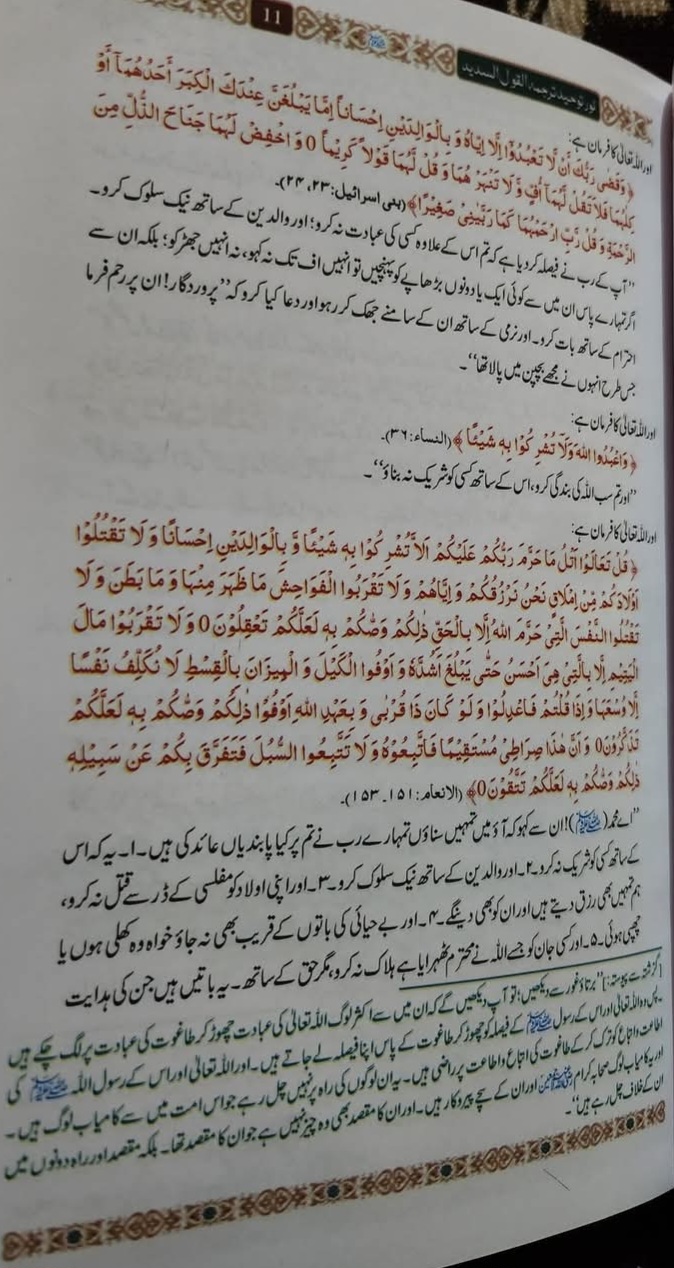 11
نور توحید ترجمہ القول السدید
اور اللہ تعالیٰ کا فرمان ہے:
﴿وَقَضٰى رَبُّكَ أَنْ لَّا تَعْبُدُوْٓا إِلَّا إِيَّاهُ وَ بِالْوَالِدَيْنِ إِحْسَاناً إِمَّا يَبْلُغَنَّ عِنْدَكَ الْكِبَرَ أَحَدُهُمَآ أَوْ
كِلٰهُمَا فَلَا تَقُلْ لَّهُمَآ أُفٍّ وَّ لَا تَنْهَرْ هُمَا وَ قُلْ لَّهُمَا قَوْلاً كَرِيْمًا 0 وَ اخْفِضْ لَهُمَا جَنَاحَ الذُّلِّ مِنَ
الرَّحْمَةِ وَ قُلْ رَّبِّ ارْحَمْهُمَا كَمَا رَبَّيٰنِىْ صَغِيْرًا﴾ (بنی اسرائیل: ۲۳، ۲۴)۔
’’آپ کے رب نے فیصلہ کردیا ہے کہ تم اس کے علاوہ کسی کی عبادت نہ کرو؛ اور والدین کے ساتھ نیک سلوک کرو۔
اگر تمہارے پاس ان میں سے کوئی ایک یا دونوں بڑھاپے کو پہنچیں تو انہیں اف تک نہ کہو، نہ انہیں جھڑکو؛ بلکہ ان سے
احترام کے ساتھ بات کرو۔ اور نرمی کے ساتھ ان کے سامنے جھک کر رہو اور دعا کیا کرو کہ’’ پروردگار! ان پر رحم فرما
جس طرح انہوں نے مجھے بچپن میں پالا تھا‘‘۔
اور اللہ تعالیٰ کا فرمان ہے:
﴿وَاعْبُدُوا اللهَ وَلَا تُشْرِ كُوْا بِهٖ شَيْئًا﴾ (النساء: ۳۶)۔
’’اور تم سب اللہ کی بندگی کرو، اس کے ساتھ کسی کو شریک نہ بناؤ‘‘۔
اور اللہ تعالیٰ کا فرمان ہے:
﴿قُلْ تَعَالَوْا اَتْلُ مَا حَرَّمَ رَبُّكُمْ عَلَيْكُمْ اَلَّا تُشْرِ كُوْا بِهٖ شَيْئًا وَّ بِالْوَالِدَيْنِ اِحْسَانًا وَ لَا تَقْتُلُوْا
اَوْلَادَكُمْ مِّنْ اِمْلَاقٍ نَحْنُ نَرْزُقُكُمْ وَ اِيَّاهُمْ وَ لَا تَقْرَبُوا الْفَوَاحِشَ مَا ظَهَرَ مِنْهَا وَ مَا بَطَنَ وَ لَا
تَقْتُلُوا النَّفْسَ الَّتِىْ حَرَّمَ اللهُ اِلَّا بِالْحَقِّ ذٰلِكُمْ وَصّٰكُمْ بِهٖ لَعَلَّكُمْ تَعْقِلُوْنَ 0 وَ لَا تَقْرَبُوْا مَالَ
الْيَتِيْمِ اِلَّا بِالَّتِىْ هِىَ اَحْسَنُ حَتّٰى يَبْلُغَ اَشُدَّهٗ وَ اَوْفُوا الْكَيْلَ وَ الْمِيْزَانَ بِالْقِسْطِ لَا نُكَلِّفُ نَفْسًا
اِلَّا وُسْعَهَا وَ اِذَا قُلْتُمْ فَاعْدِلُوْا وَ لَوْ كَانَ ذَا قُرْبٰى وَ بِعَهْدِ اللهِ اَوْفُوْا ذٰلِكُمْ وَصّٰكُمْ بِهٖ لَعَلَّكُمْ
تَذَكَّرُوْنَ 0 وَ اَنَّ هٰذَا صِرَاطِىْ مُسْتَقِيْمًا فَاتَّبِعُوْهُ وَ لَا تَتَّبِعُوا السُّبُلَ فَتَفَرَّقَ بِكُمْ عَنْ سَبِيْلِهٖ
ذٰلِكُمْ وَصّٰكُمْ بِهٖ لَعَلَّكُمْ تَتَّقُوْنَ 0﴾ (الانعام: ۱۵۱۔ ۱۵۳)۔
’’اے محمد (ﷺ)! ان سے کہو کہ آؤ میں تمہیں سناؤں تمہارے رب نے تم پر کیا پابندیاں عائد کی ہیں۔ ۱۔ یہ کہ اس
کے ساتھ کسی کو شریک نہ کرو۔ ۲۔ اور والدین کے ساتھ نیک سلوک کرو۔ ۳۔ اور اپنی اولاد کو مفلسی کے ڈر سے قتل نہ کرو،
ہم تمہیں بھی رزق دیتے ہیں اور ان کو بھی دینگے۔ ۴۔ اور بے حیائی کی باتوں کے قریب بھی نہ جاؤ خواہ وہ کھلی ہوں یا
چھپی ہوئی۔ ۵۔ اور کسی جان کو جسے اللہ نے محترم ٹھہرایا ہے ہلاک نہ کرو، مگر حق کے ساتھ۔ یہ باتیں ہیں جن کی ہدایت
[گزشتہ سے پیوستہ:] ’’برتاؤ غور سے دیکھیں؛ تو آپ دیکھیں گے کہ ان میں سے اکثر لوگ اللہ تعالیٰ کی عبادت چھوڑ کر طاغوت کی عبادت پر لگ چکے ہیں
۔ پس وہ اللہ تعالیٰ اور اس کے رسول ﷺ کے فیصلہ کو چھوڑ کر طاغوت کے پاس اپنا فیصلہ لے جاتے ہیں۔ اور اللہ تعالیٰ اور اس کے رسول اللہ ﷺ کی
اطاعت و اتباع کو ترک کر کے طاغوت کی اتباع و اطاعت پر راضی ہیں۔ یہ ان لوگوں کی راہ پر نہیں چل رہے جو اس امت میں سے کامیاب لوگ ہیں۔
اور یہ کامیاب لوگ صحابہ کرام اور ان کے سچے پیروکار ہیں۔ اور ان کا مقصد بھی وہ چیز نہیں ہے جو ان کا مقصد تھا۔ بلکہ مقصد اور راہ دونوں میں
ان کے خلاف چل رہے ہیں‘‘۔